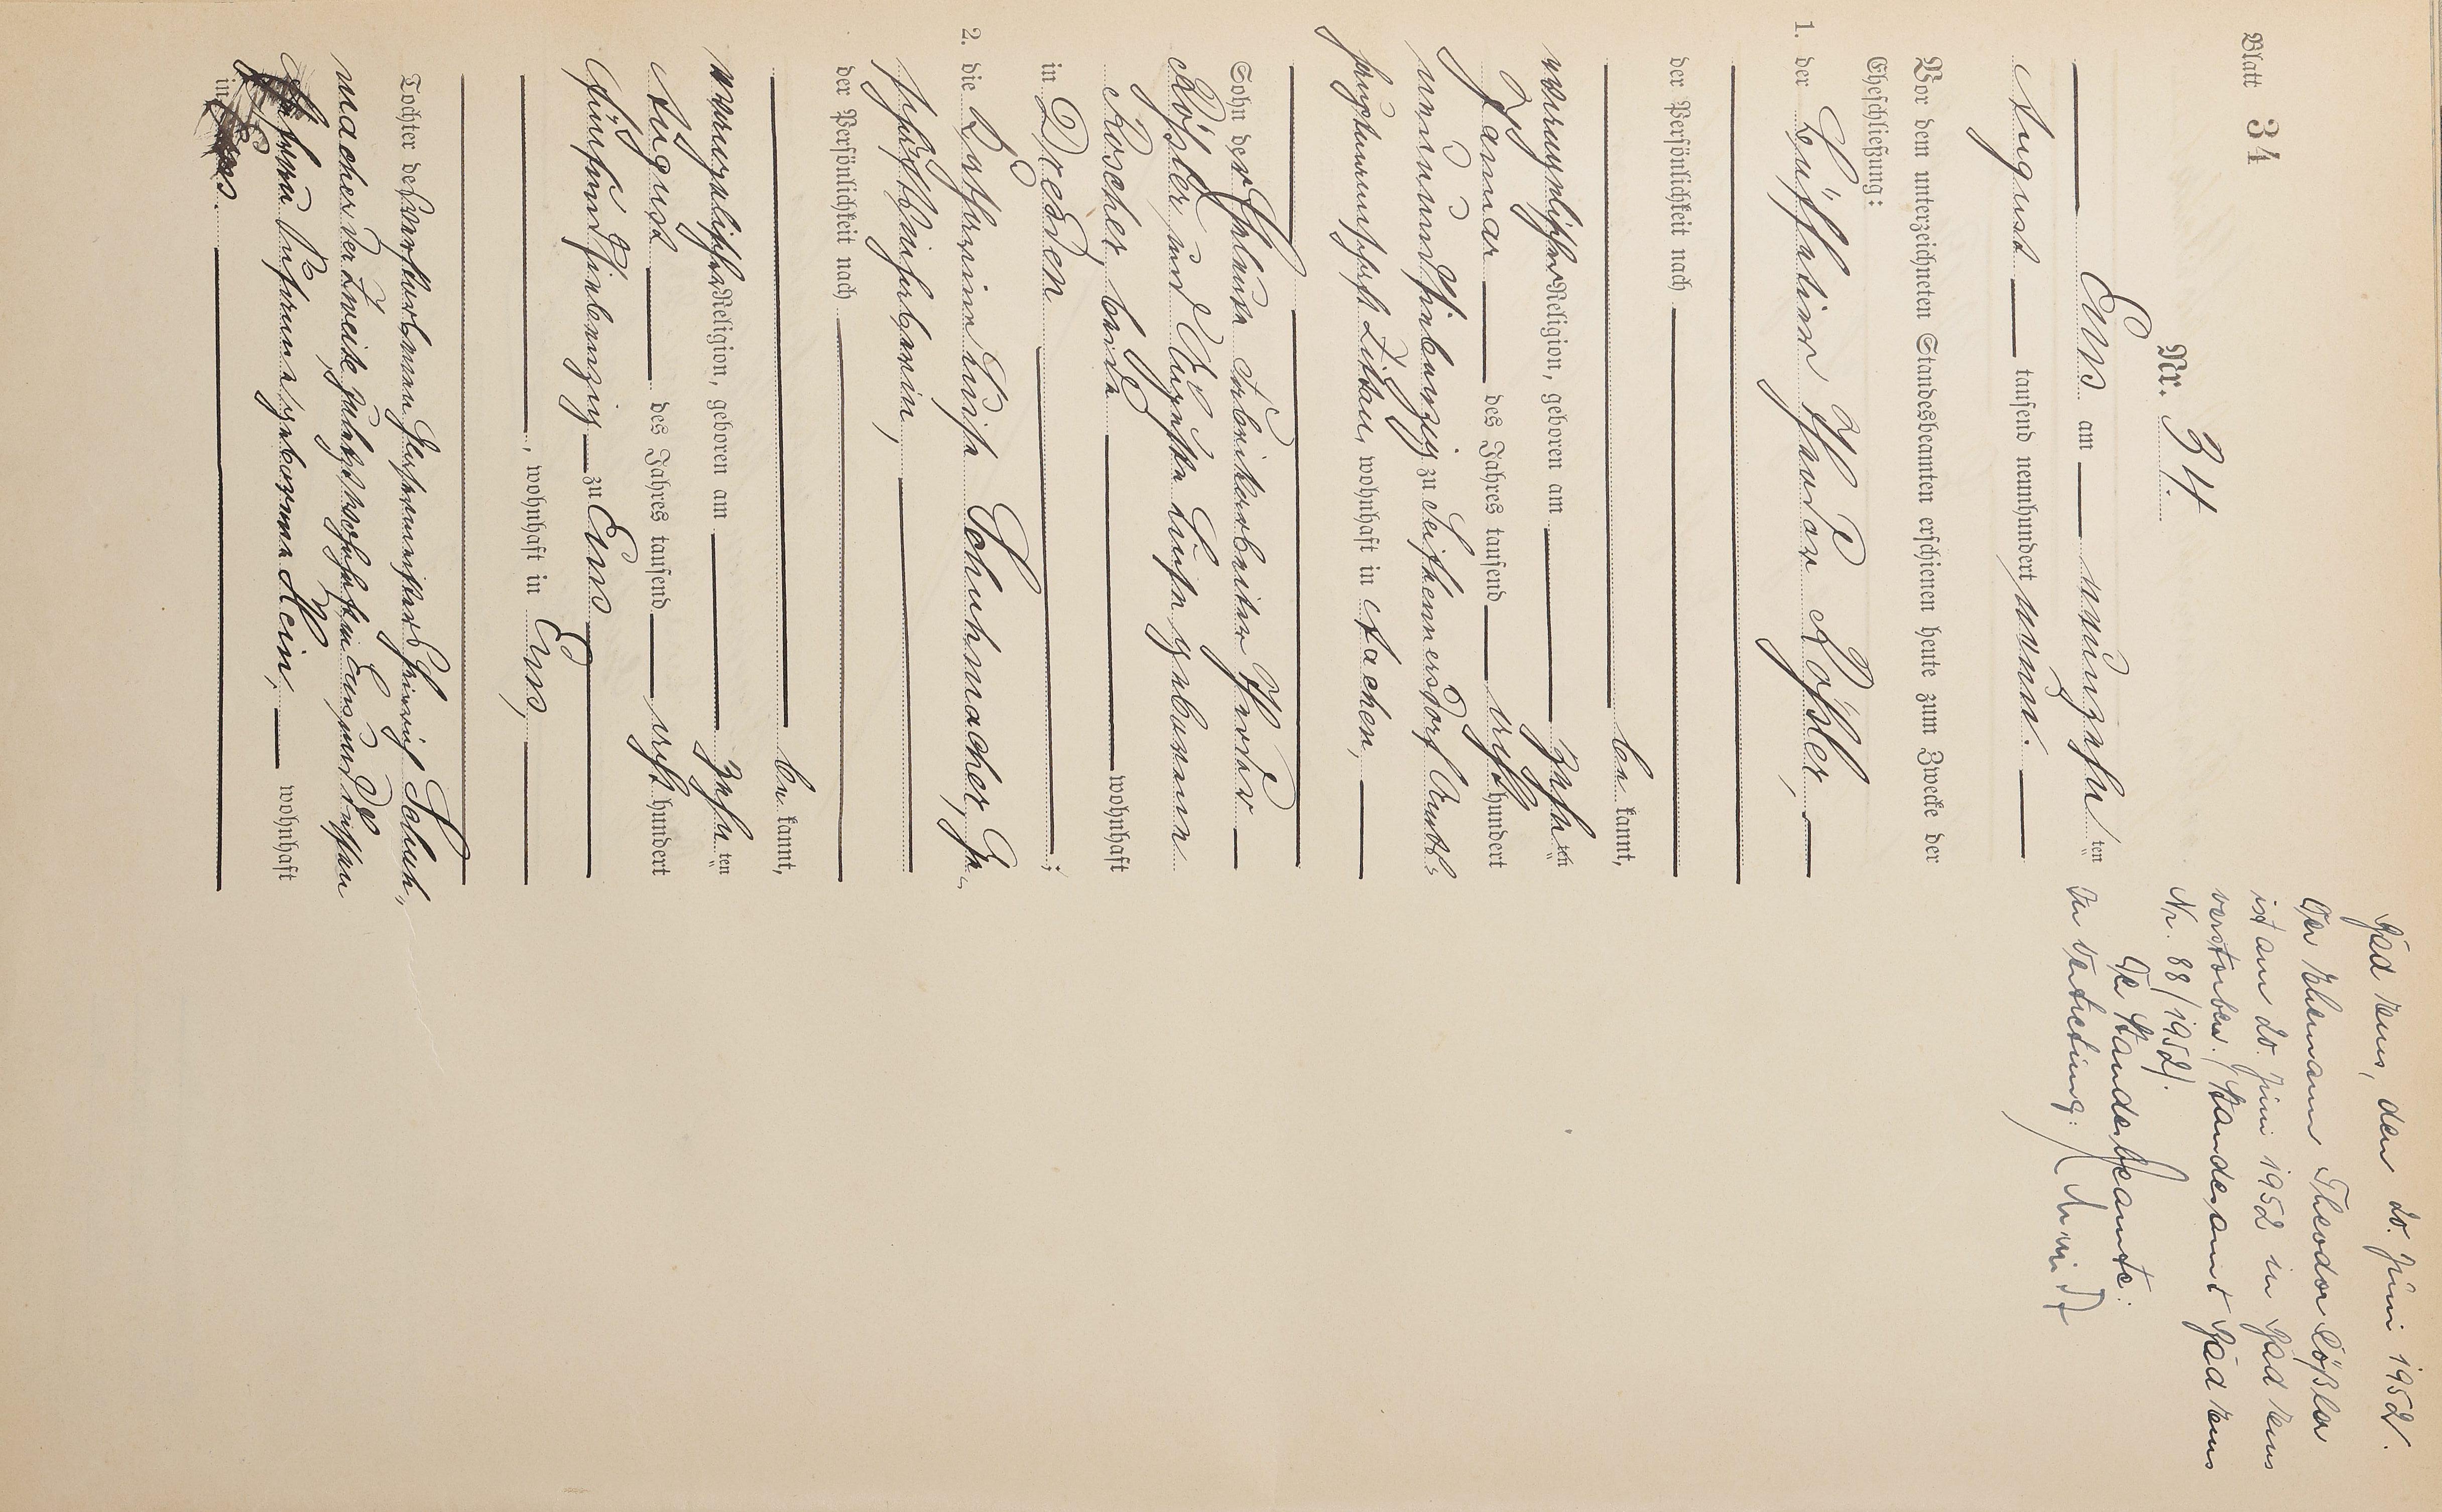 Blatt 34
Nr. 34.
Ems am neunzehnten
August tausend neunhundert neun.
Vor dem unterzeichneten Standesbeamten erschienen heute zum Zwecke der
Eheschließung:
1. der Büffetier Theodor Rößler,
der Persönlichkeit nach
be kannt,
evangelischer Religion, geboren am zehnten
Januar des Jahres tausend acht hundert
neunundsiebenzig zu Seifhennersdorf Amts-
hauptmannschaft Zittau, wohnhaft in Aachen,
Sohn der Eheleute Fabrikarbeiter
Rößler und Auguste Luise geborenen
Roscher, beide wohnhaft
in Dresden;
2. die Luise Schuhmacher, Ge-
schäftsinhaberin,
der Persönlichkeit nach
be kannt,
evangelischer Religion, geboren am zehnten
August des Jahres tausend acht hundert
fünfundsiebenzig zu Ems
, wohnhaft in Ems,
Tochter des verstorbenen Schreinermeister Heinrich Schuh-
macher der Zweite, zuletzt wohnhaft in Ems, und dessen
Ehefrau geborenen Hein, wohnhaft
in Ems.
Bad Ems, den 20. Juni 1952.
Der Ehemann Theodor Rößler
ist am 20. Juni 1952 in Bad Ems
verstorben. (Standesamt Bad Ems
Nr. 88/1952).
Der Standesbeamte:
In Vertretung: